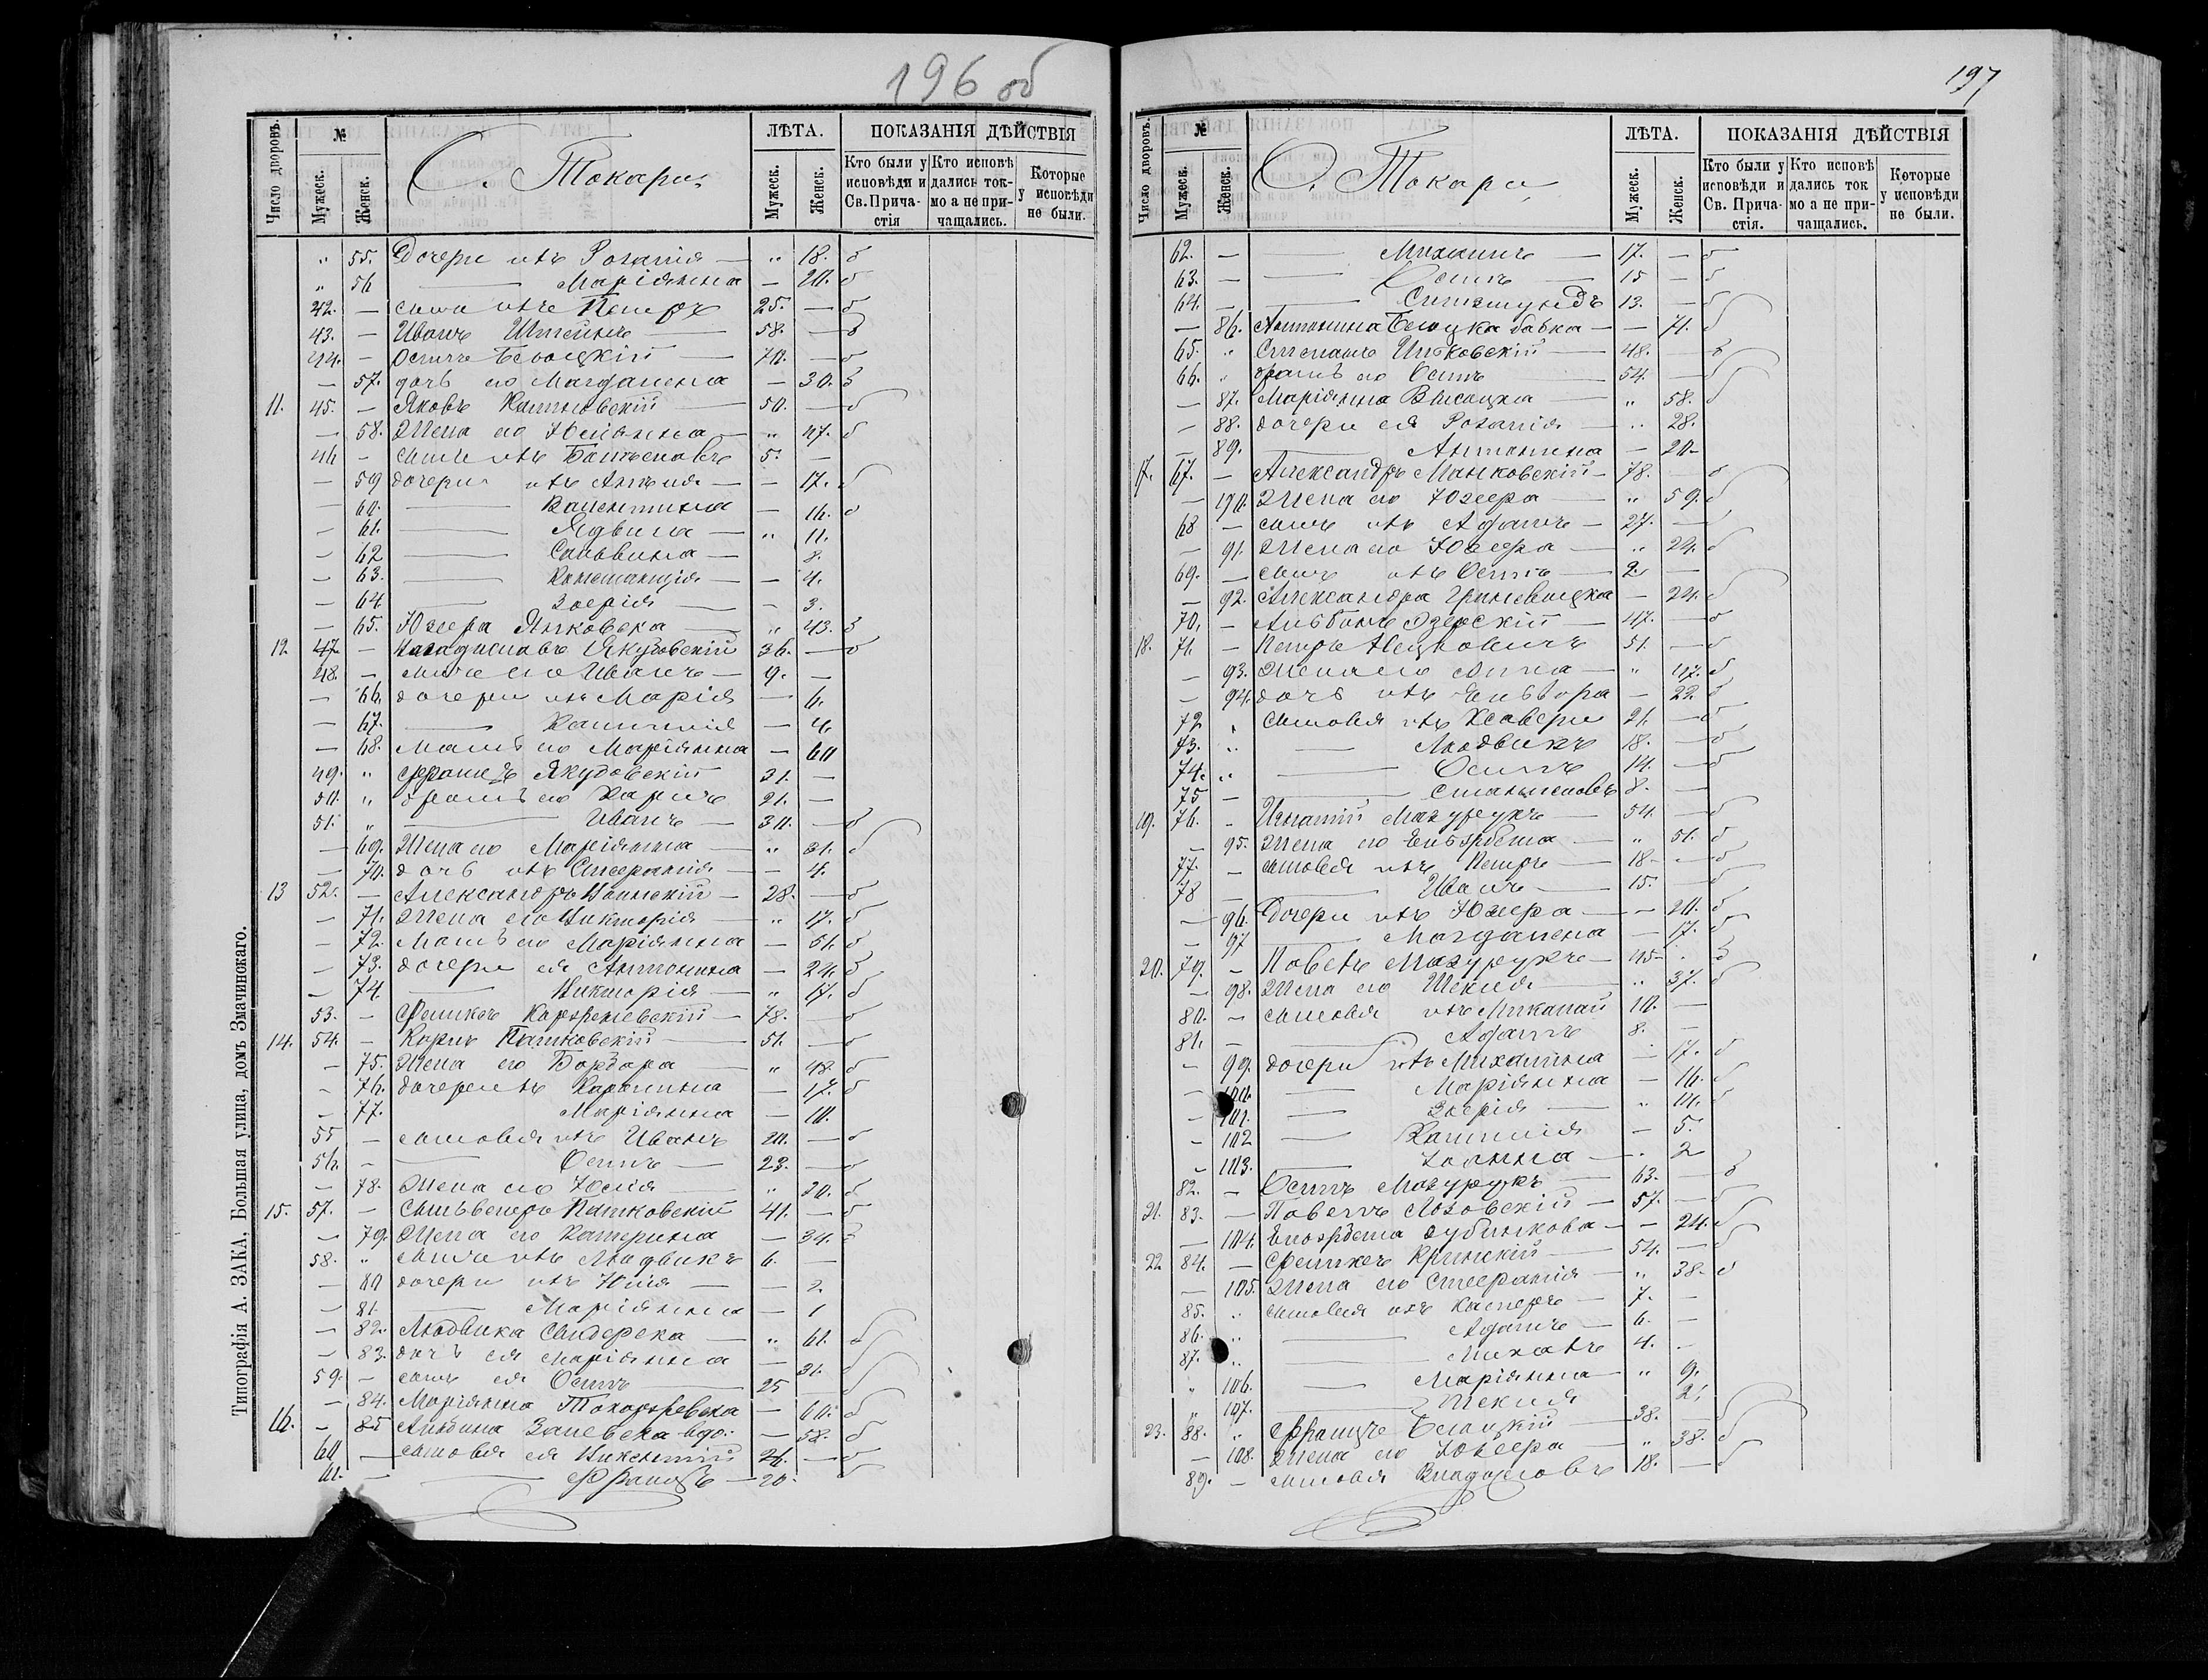 196 об
Число дворовъ. № ЛѢТА. ПОКАЗАНІЯ ДѢЙСТВІЯ
Мужеск. Женск. О. Токари Мужеск. Женск. Кто были у исповѣди и Св. Причастія Кто исповѣдались токмо а не причащались. Которые у исповѣди не были.
" 55. Дочери ихъ Розалія — " 18. б
" 56 — Маріянна — 20. б
42. — сынъ ихъ Петръ 25. — б
43. — Иванъ 58. — б
44. — Осипъ Бѣлоцкій 70. — б
— 57. дочь его Магдалена — 30. б
11. 45. — Яковъ 50. — б
— 58. Жена его — " 47. б
46 — сынъ ихъ 5. —
— 59 дочери ихъ — 17. б
— 60. — Валентина — 16. б
— 61. — Ядвига — " 11.
— 62 — Сальвина — 8.
— 63. — Констанція — 4.
— 64 — Зофія — 3.
— 65. Юзефа Янковска — " 43. б
12 47 — Владиславъ Якубовскій 36. — б
48. — сынъ его Иванъ — 9. —
— 66. дочери ихъ Марія — 6.
— 67. — Камилія — 4
— 68. мать его Маріянна — 60
49. " Францъ Якубовскій 31. —
50. " братъ его Карлъ 21. —
51. " — Иванъ — 30. — б
— 69. Жена его Маріянна — " 31. б
— 70. дочь ихъ Стефанія — 4.
13 52. — Александръ — 28. — б
— 71. Жена его Викторія — " 17. б
— 72. Мать его Маріянна — 51. б
— 73. дочери ея Антонина — 24. б
— 74. — Викторія — " 17. б
53. — Феликсъ — 78. — б
14. 54. — Карлъ Патковскій 51. — б
— 75. Жена его Барбара — " 48. б
— 76. дочери ихъ Каролина — 17. б
— 77. Маріянна — 10.
55 — сыновья ихъ Иванъ 20. — б
56. — Осипъ — 23. — б
— 78. Жена его Юлія " 20. б
15. 57. — Сильвестръ Патковскій 41. — б
— 79. Жена его Катерина — 34. б
58. " сынъ ихъ Людвикъ 6. —
— 80 дочери ихъ Юлія — — 2.
— 81. — Маріянна — 1
— 82. Людвика — " 61. б
— 83. дочь ея Маріянна — 31. б
59. — сынъ ея Осипъ 25 — б
— 84. Маріянна — 60. б
16. — 85 Альбина вдо. — 58. б
60 — сыновья ея Викентій 26. — б
61. — Францъ — 20.
Типографія А. ЗАКА, Большая улица, домъ Змачинскаго.
197
Число дворовъ. № ЛѢТА. ПОКАЗАНІЯ ДѢЙСТВІЯ
Мужеск. Женск. О. Токари Мужеск. Женск. Кто были у исповѣди и Св. Причастія. Кто исповѣдались ток мо а не причащались. Которые у исповѣди не были.
62. — Михаилъ — 17. — б
63. — Осипъ — 15 — б
64. — Сигизмундъ 13. — б
— 86. Антонина Бѣлоцка бабка — — 71. б
65. " Степанъ 48. — б
66. " братъ его Осипъ 54. — б
— 87. Маріянна Высоцка — " 58. б
— 88. дочери ея Розалія — " 28.
— 89. Антонина — 20 —
17. 67. — Александръ Маньковскій — 78. — б
— 90. Жена его Юзефа — " 59. б
68 — сынъ ихъ Адамъ — 27. —
— 91. Жена его Юзефа — " 24. б
69. — сынъ ихъ Осипъ — 2. —
— 92. Александра Гриневицка — 24. б
70. — Альбинъ Озерскій — 47. — б
18. 71. — Петръ 51. — б
— 93. Жена его Анна — " 47. б
— 94. дочь ихъ — 22. б
72 " сыновья ихъ Ксаверы 21. — б
73. " — Людвикъ 18. — б
74. " — Осипъ 14. — б
75 — Станиславъ 8. —
19. 76. — Игнатій Мазурукъ — 54. — б
— 95. Жена его Ельзбета — " 51. б
77. — сыновья ихъ Петръ — 18 — — б
78 — Иванъ — 15. — б
— 96. Дочери ихъ Юзефа — — 20. б
— 97 — Магдалена — 17. б
20. 79. — Павелъ Мазурукъ — 45 — б
— 98. Жена его Текля " 37. б
80. — сыновья ихъ Миколай 10. —
81. — Адамъ 8. —
— 99. дочери ихъ Михалина — 17. б
— 100. — Маріянна — 16. б
— 101. — Зофія — " 14. б
— 102 — Камилія — 5.
— 103. — Іоанна — " 2
82. — Осипъ Мазурукъ — 63. — б
21. 83. — Павелъ — 57. — б
— 104. — — 24. б
22 84. — Феликсъ 54. — б
— 105. Жена его Стефанія — " 38. б
85. " сыновья ихъ Касперъ — 7. —
86. " — Адамъ — 6. —
87. " — Михалъ 4. —
" 106. — Маріянна — " 9.
" 107. — Текля 2.
23. 88. " Францъ Бѣлоцкій — 38. — б
— 108. Жена его Юзефа — " 38. б
89. — сыновья Владиславъ 18. — б